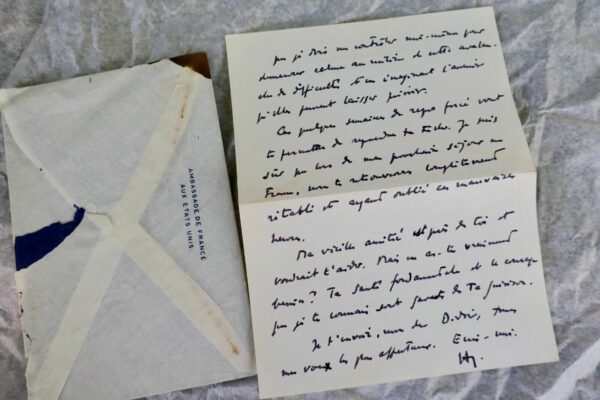 AMBASSADE DE FRANCE
AUX ETATS UNIS.
que je dois me contrôler moi-même pour
demeurer calme au milieu de cette avalan-
che de difficultés et en imaginant l'avenir
qu'elles peuvent laisser prévoir.
Ces quelques semaines de repos forcé vont
te permettre de reprendre ta tâche. Je suis
sûr que lors de mon prochain séjour en
France, nous te retrouverons complètement
rétabli et ayant oublié ces mauvaises
heures.
Ma vieille amitié est près de toi et
voudrait t'aider. Mais en as-tu vraiment
besoin? Ta santé fondamentale et le courage
que je te connais sont garants de ta guérison.
Je t'envoie, avec
mes voeux les plus affectueux. Écris-moi.